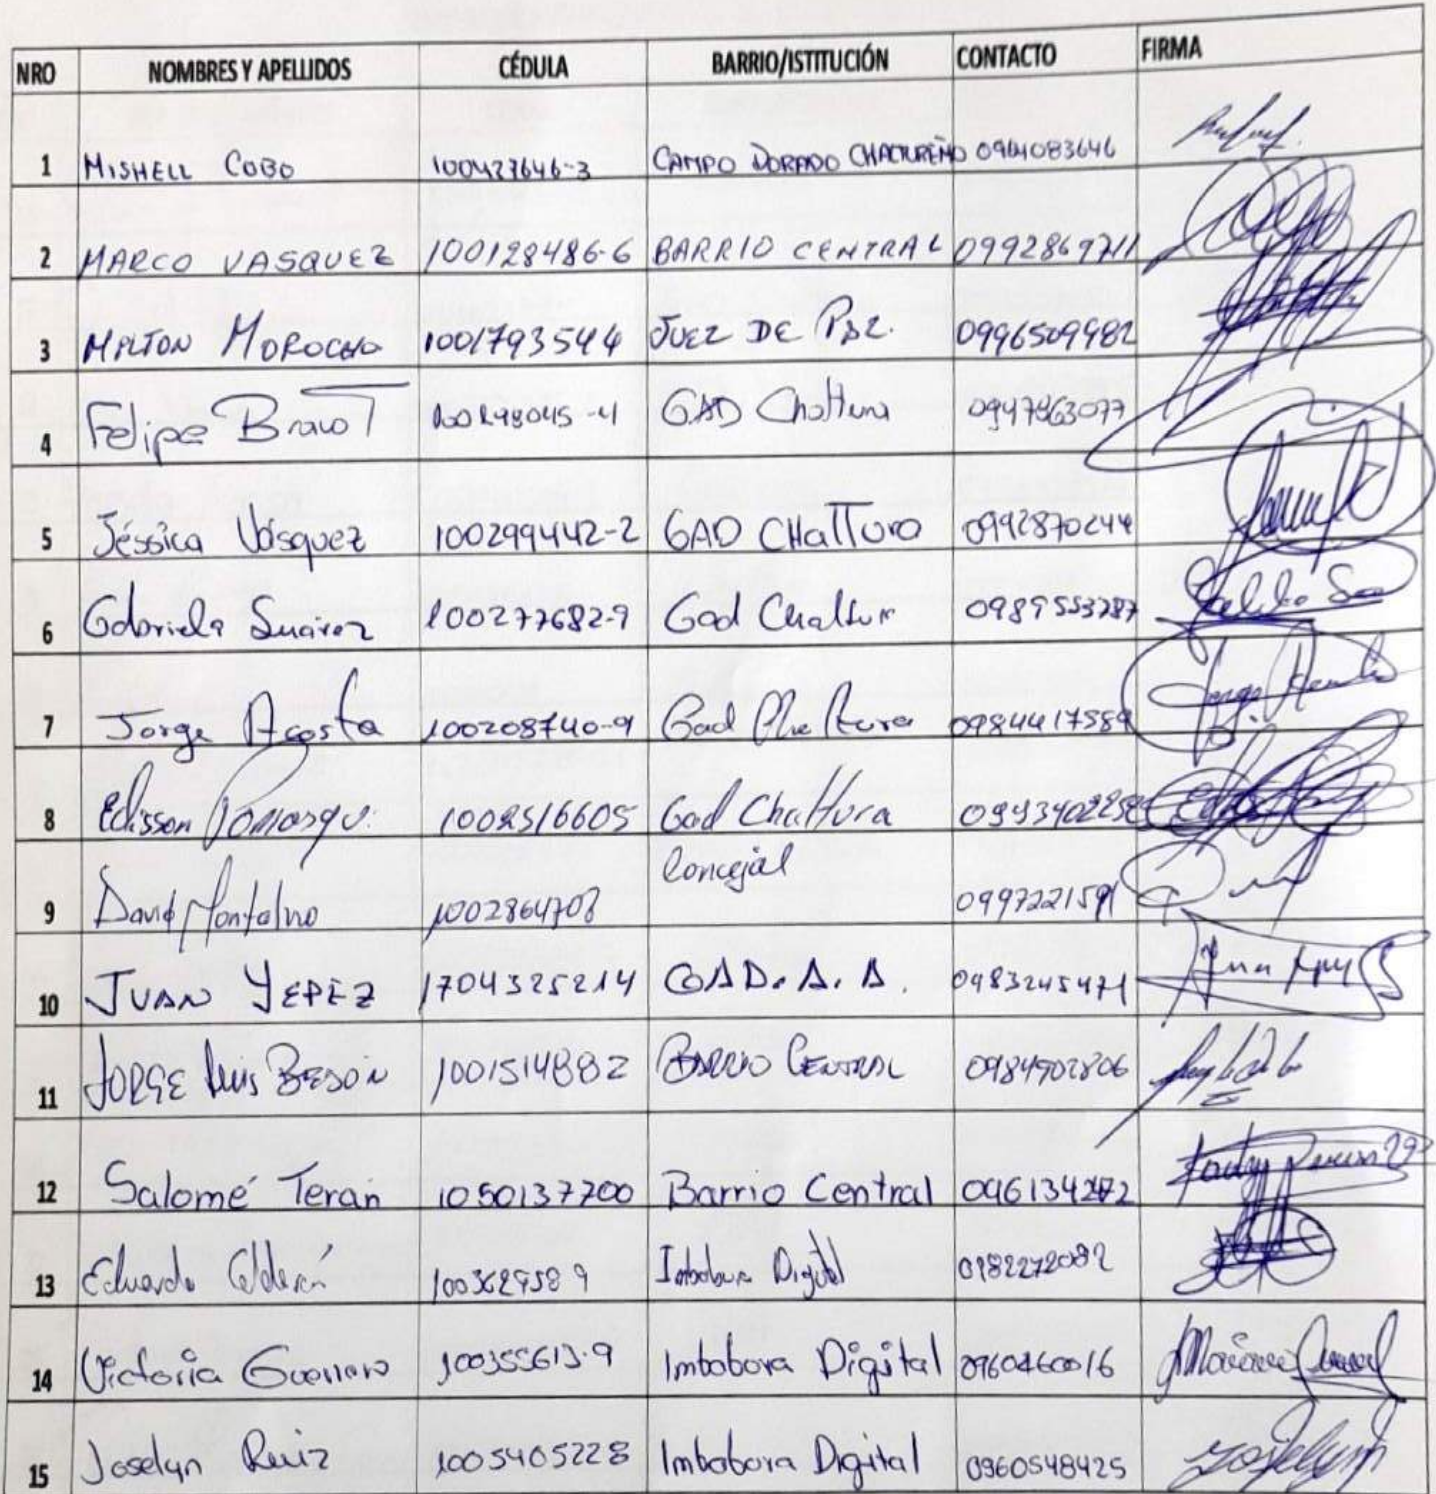 NRO NOMBRES Y APELLIDOS CÉDULA BARRIO/ISTITUCIÓN CONTACTO FIRMA
1 MISHELL COBO 100427646-3 CAMPO DORADO CHALTUREÑO 0964083646
2 MARCO VASQUEZ 100128486-6 BARRIO CENTRAL 0992869711
3 MILTON MOROCHO 1001793544 JUEZ DE PAZ. 0996509982
4 Felipe Bravo T GAD Chaltura 0947863077
5 Jéssica Vásquez 100299442-2 GAD CHalTura 0992870244
6 Gabriela Suárez 100277682-9 Gad Chaltur 0989553287
7 Jorge Acosta 100208740-9 Gad Chaltura 0984417589
8 Edisson Pomasqui 1002516605 Gad Chaltura
9 David Montalvo 1002864708 Concejal 0997221591
10 JUAN YEPEZ 1704325214 GAD. A. A. 0983245471
11 JORGE Luis BEDÓN 1001514882 BARRIO CENTRAL 0984902806
12 Salomé Terán 1050137700 Barrio Central 096134272
13 Eduardo Calderón 100362958 9 Imbabura Digital 0982272082
14 Victoria Guerrero 100355613-9 Imbabura Digital 0960460016
15 Joselyn Ruiz 1005405228 Imbabura Digital 0960548425